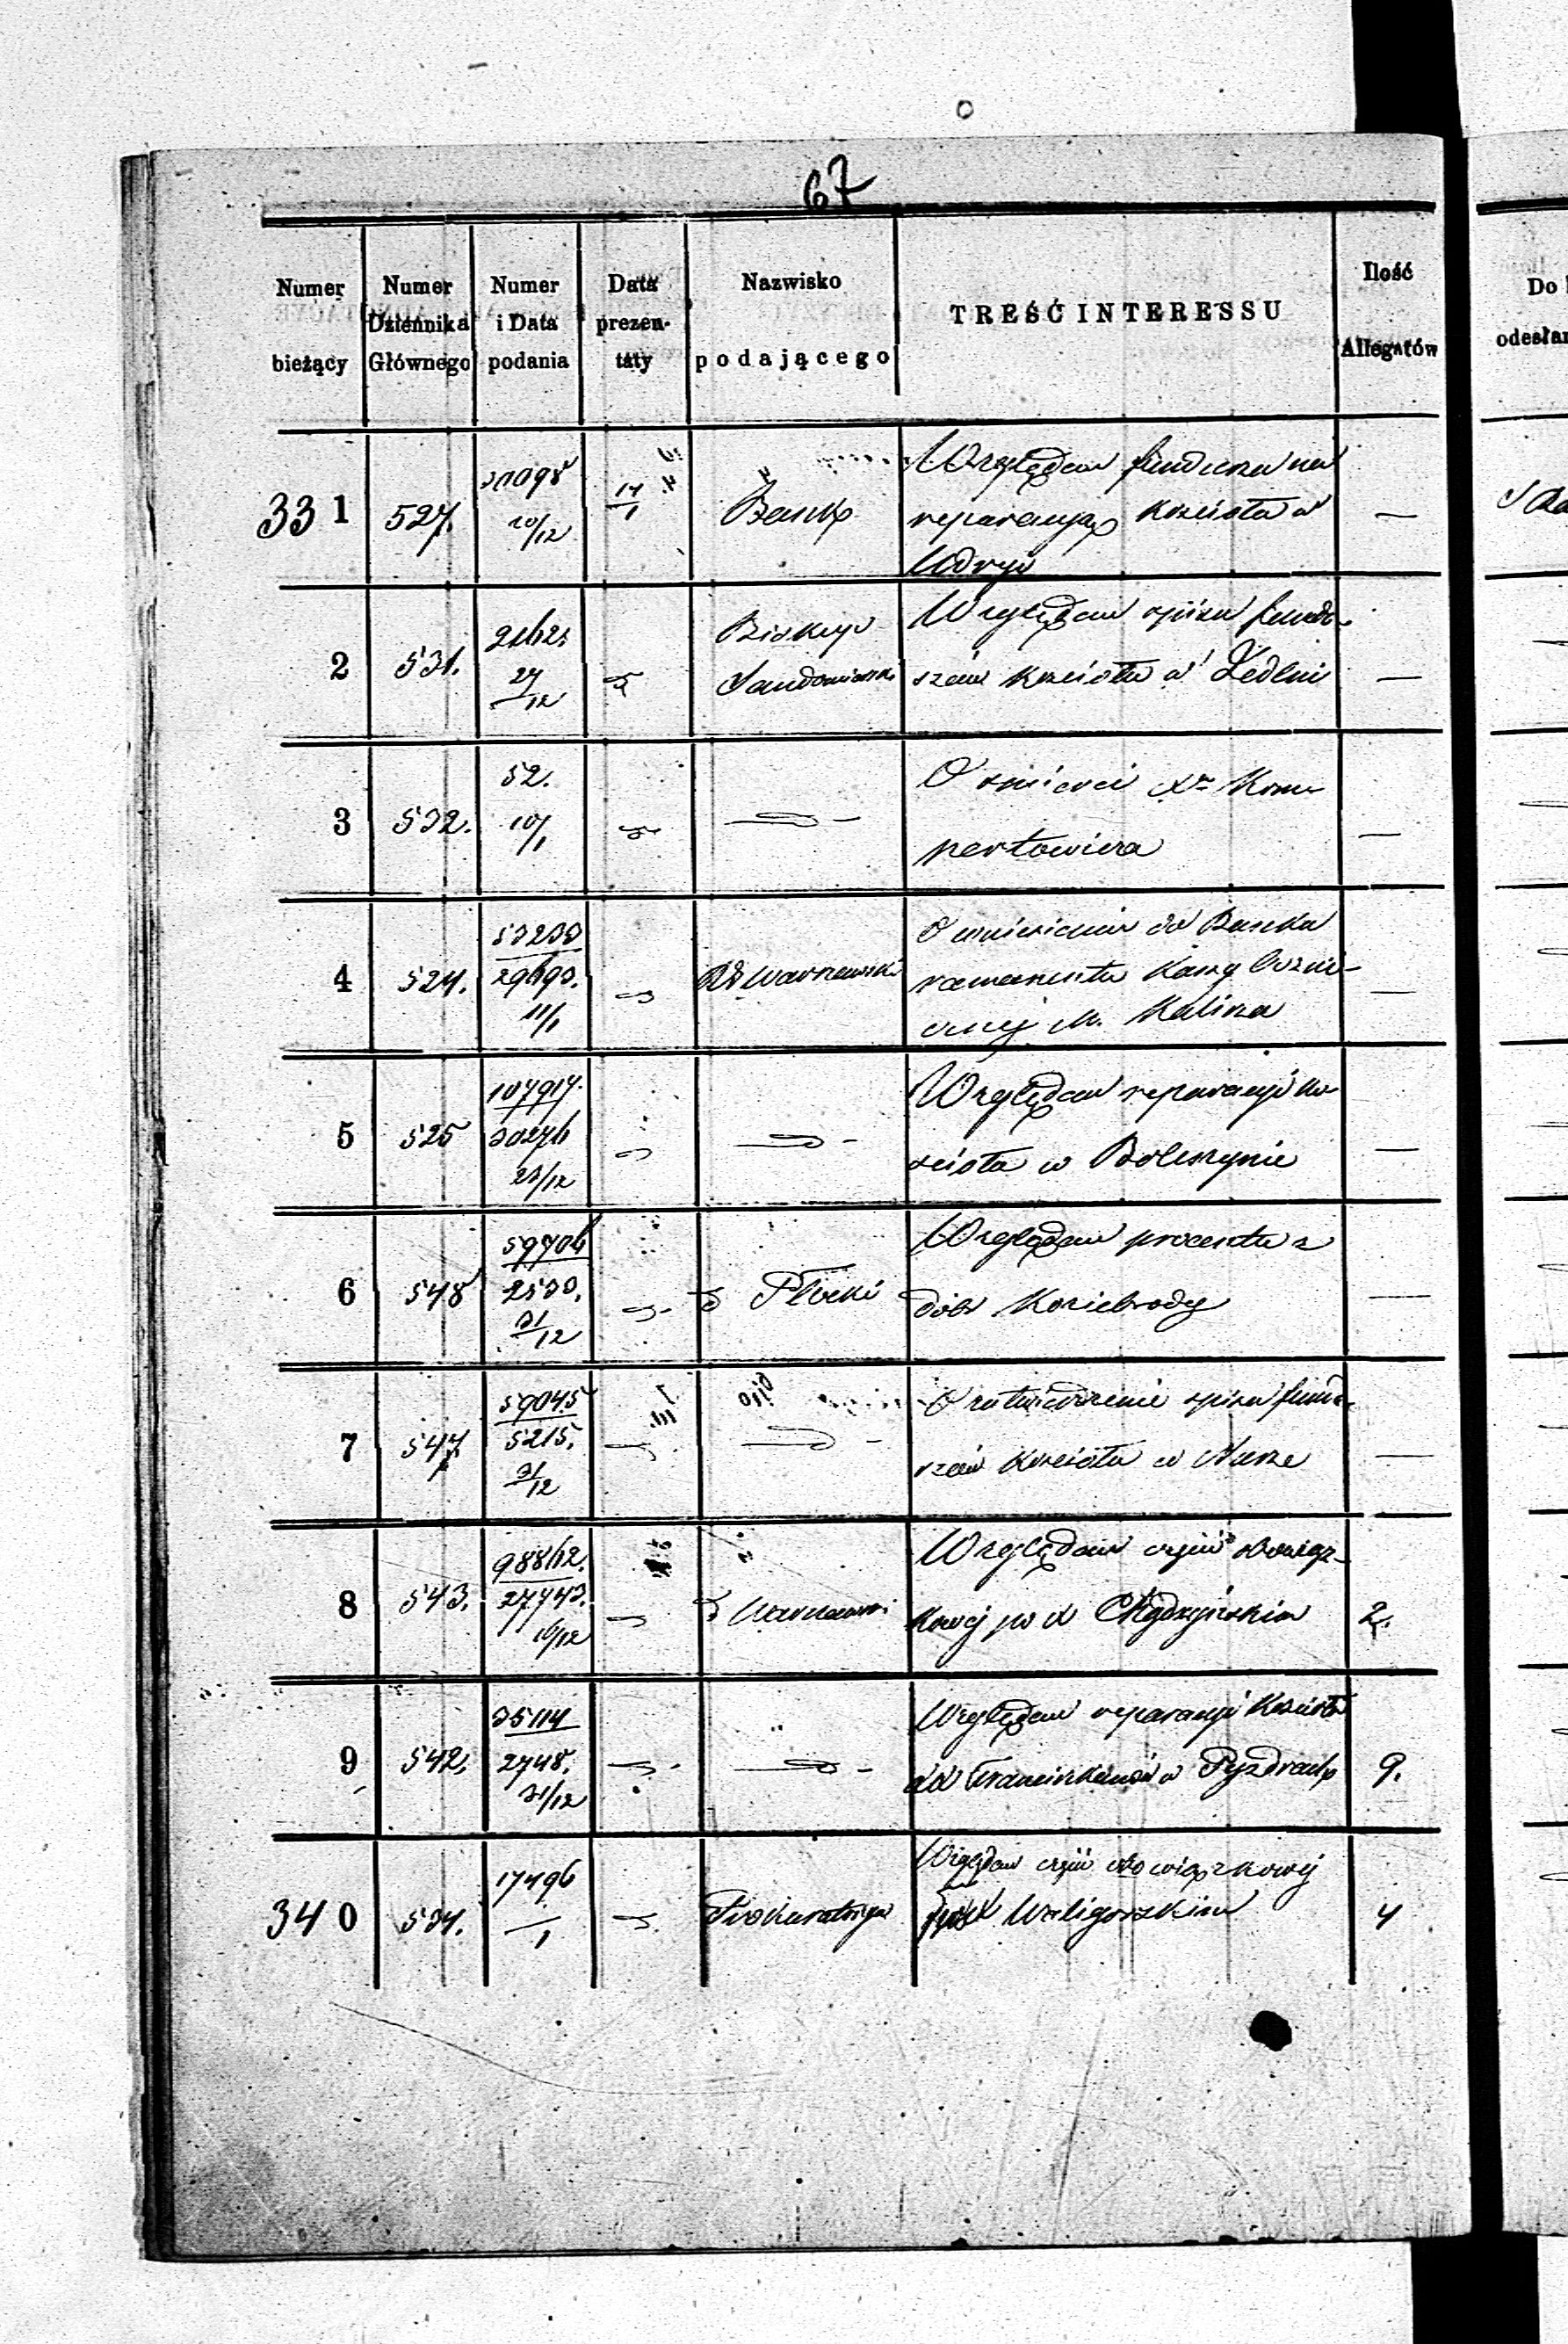 67
Numer bieżący
Numer Dziennika Głównego
Numer i Data podania
Data prezentaty
Nazwisko podającego
TREŚĆ INTERESSU
Ilość Allegatów
Do
odesłan
331 527. 20/12 17/1 Bank Względem funduszu na
reparacyą kościoła w
—
2 531. 27/12 Biskup
Sandomierski Względem spisu fundu-
szów kościoła w Jedlni
—
3 532. 52.
10/1 O śmierci Xa Kom-
pertowicza
—
4 524. 53233
29693.
11/1 RG Warszawski O wniesienie do Banku
remanentu Kassy
M. Kalisza
—
5 525 107917.
30276
23/12 Względem reparacyi ko-
ścioła w Boleszynie
—
6 548 59706
2530.
31/12 Płocki Względem procentu z
dóbr Koziebrody
—
7 547 59045
5215.
31/12 O zatwierdzenie spisu fundu-
szów kościoła w
—
8 543. 98862.
27743.
16/12 Warszawski Względem części obowiąz-
kowej po X
2.
9 542. 35114
2748.
31/12 Względem reparacyi Kościoła
XX Franciszkanów w Pyzdrach
9.
340 534. 17496
/1 Prokuratorya Względem części obowiązkowej
po X Waligorskim
4